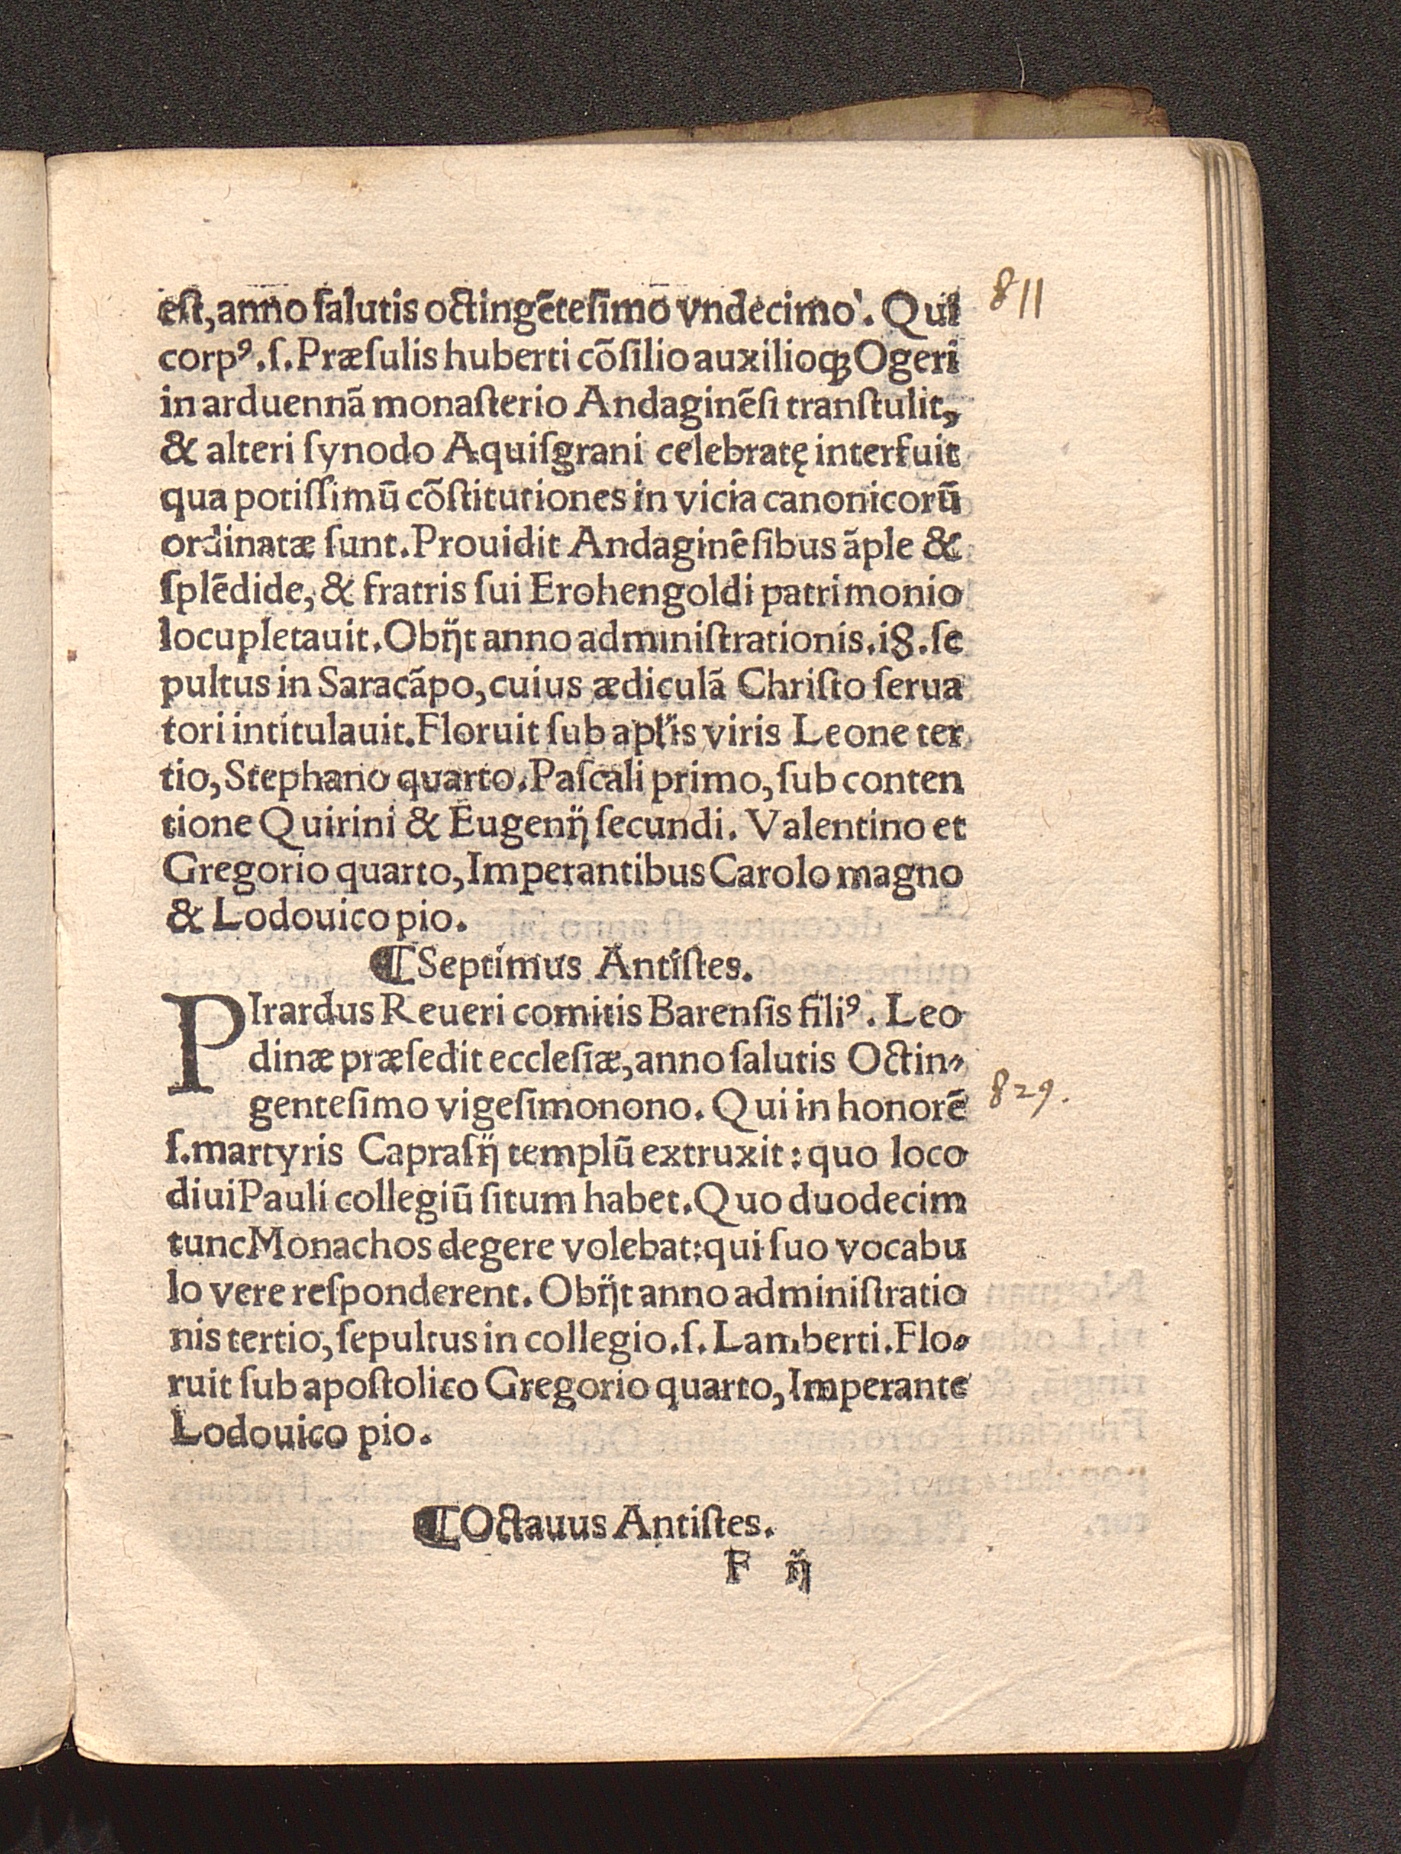 est, anno salutis octingẽtesimo vndecimo. Qui 811
corpꝰ. ſ. Præſulis huberti cõſilio auxilioqꝫ Ogeri
in arduennã monaſterio Andaginẽſi tranſtulit,
& alteri ſynodo Aquiſgrani celebratę interfuit
qua potiſſimũ cõſtitutiones in vicia canonicorũ
ordinatæ ſunt. Prouidit Andaginẽſibus ãple &
ſplẽdide, & fratris ſui Erohengoldi patrimonio
locupletauit. Obijt anno adminiſtrationis. i8. ſe
pultus in Saracãpo, cuius ædiculã Chriſto ſerua
tori intitulauit. Floruit ſub apl'is viris Leone ter
tio, Stephano quarto. Paſcali primo, ſub conten
tione Quirini & Eugenij ſecundi. Valentino et
Gregorio quarto, Imperantibus Carolo magno
& Lodouico pio.
⁋Septimus Antiſtes.
PIrardus Reueri comitis Barenſis filiꝰ. Leo
dinæ præſedit eccleſiæ, anno ſalutis Octin⸗
genteſimo vigeſimonono. Qui in honorẽ 829.
ſ. martyris Capraſij templũ extruxit: quo loco
diui Pauli collegiũ ſitum habet. Quo duodecim
tunc Monachos degere volebat: qui ſuo vocabu
lo vere reſponderent. Obijt anno adminiſtratio
nis tertio, ſepultus in collegio. ſ. Lamberti. Flo⸗
ruit ſub apoſtolico Gregorio quarto, Imperante
Lodouico pio.
⁋Octauus Antiſtes.
F ij